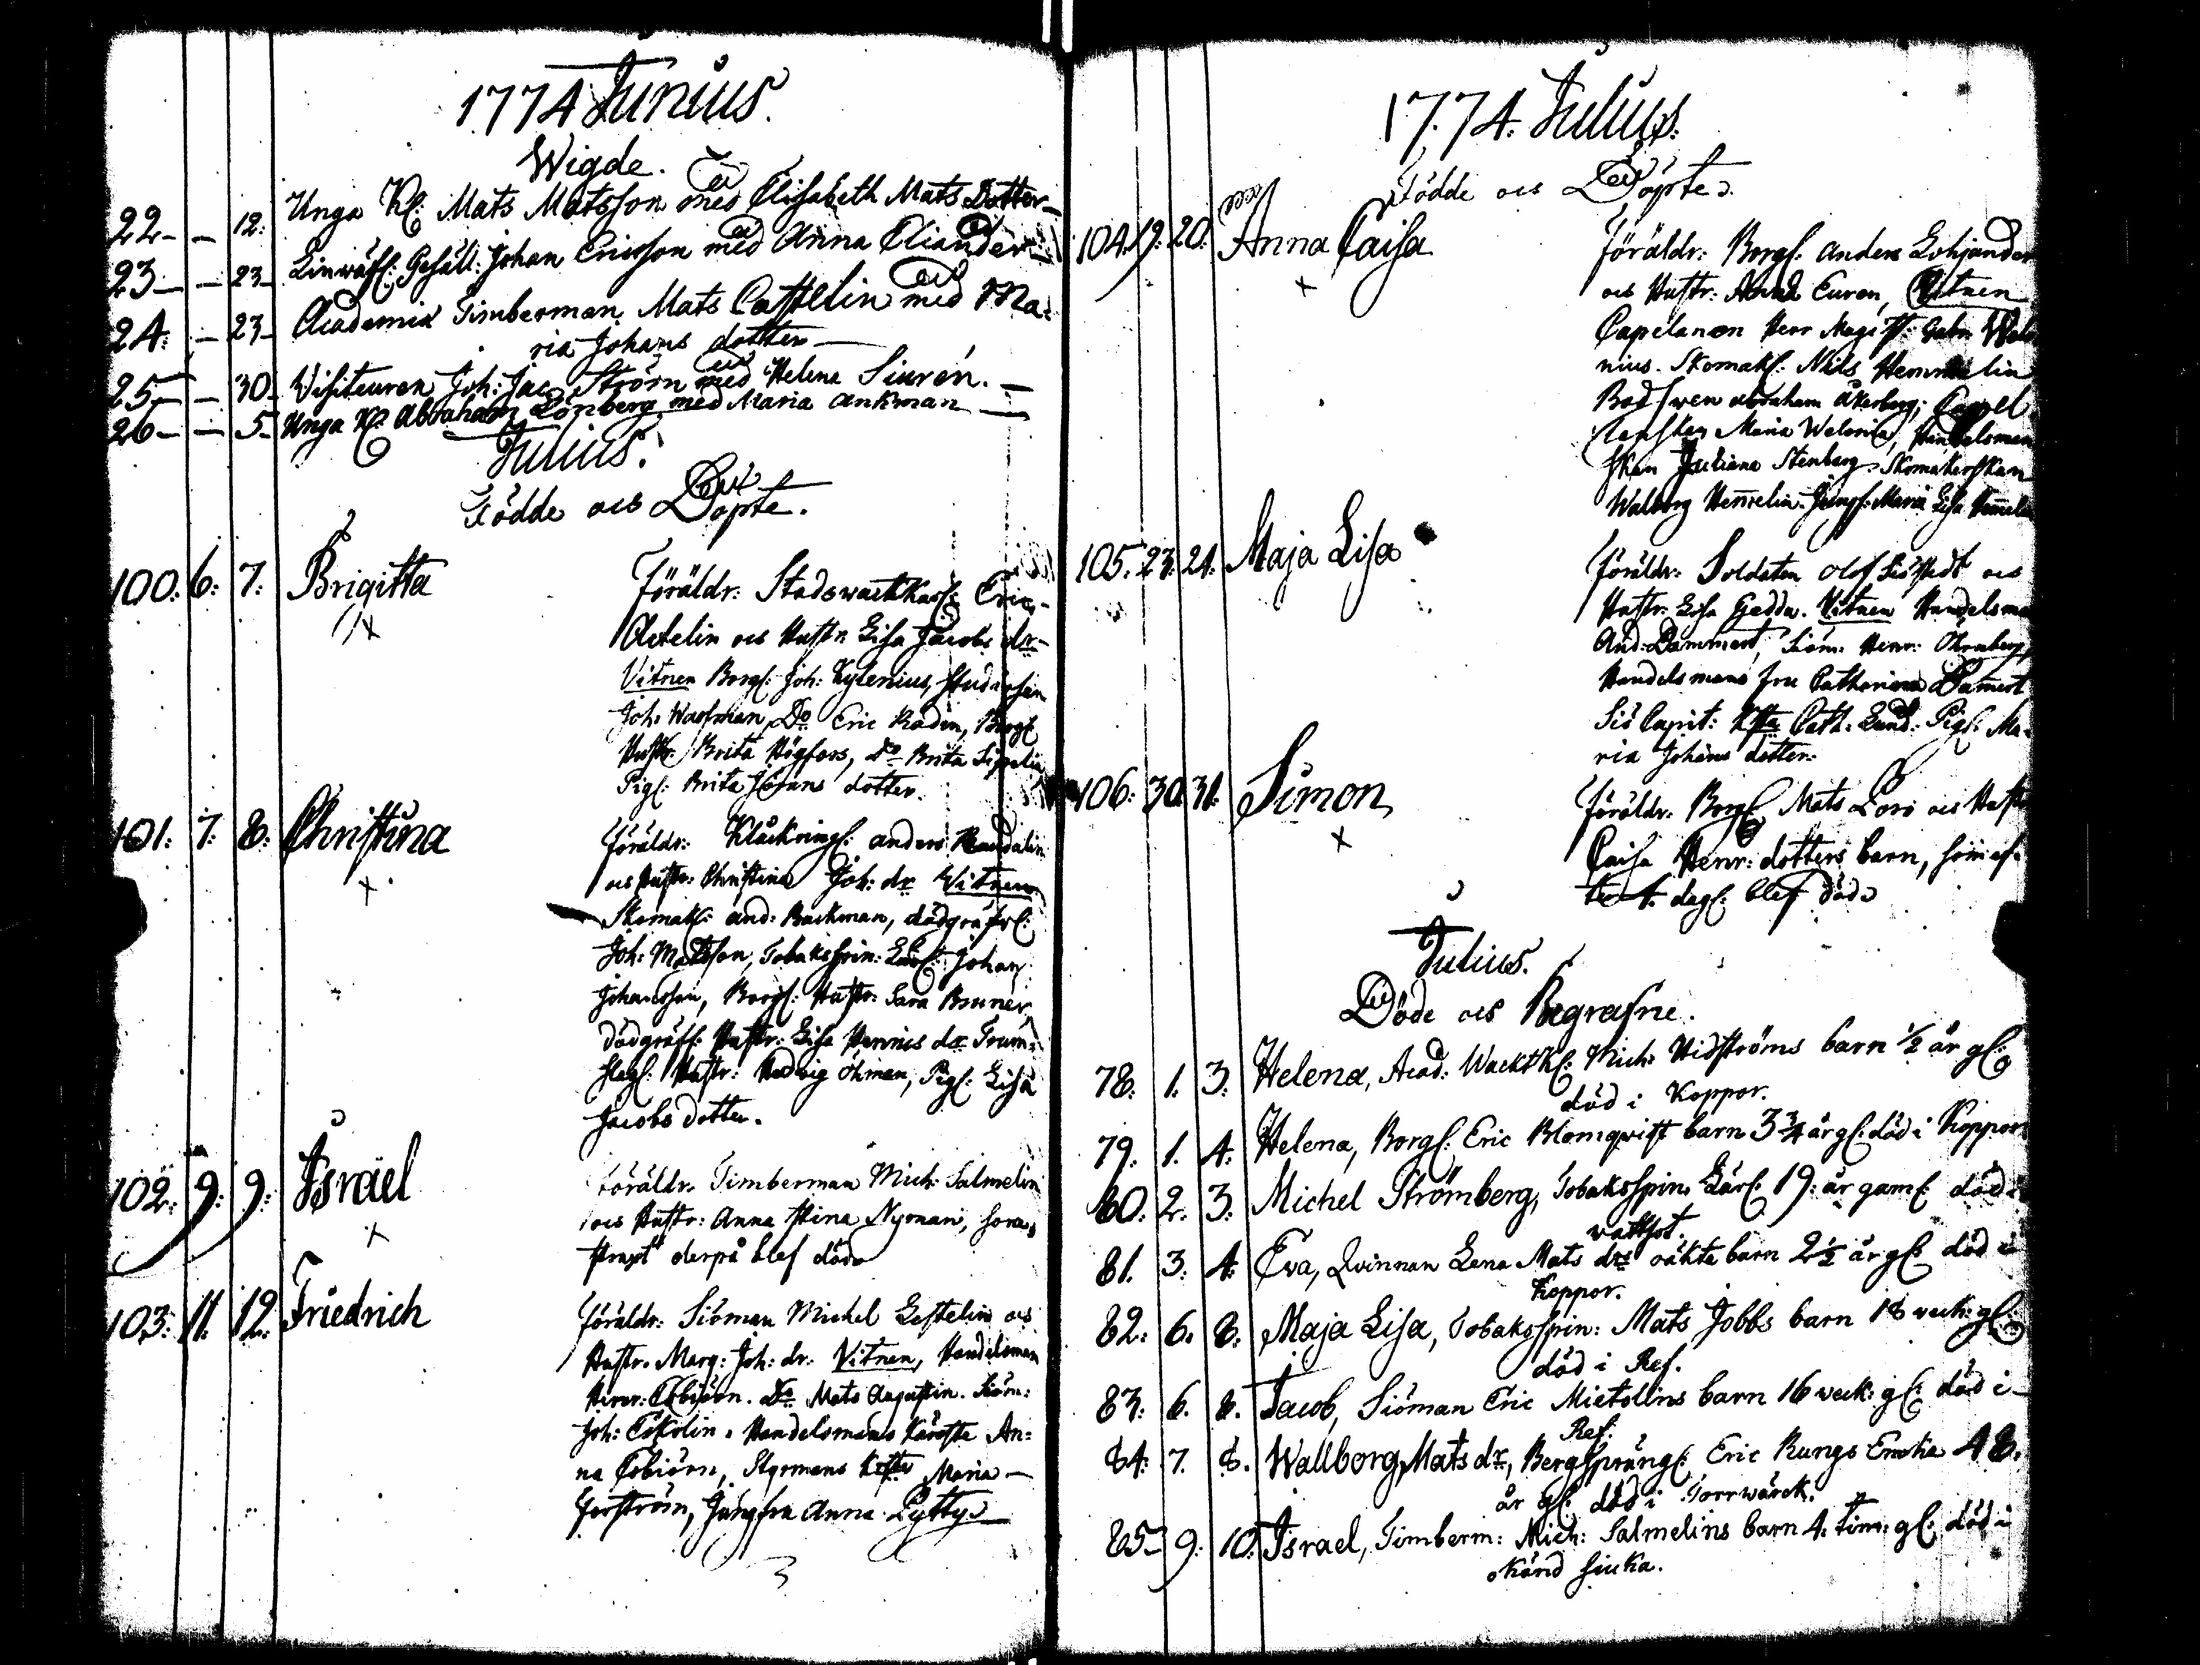 1774 Junius.
Wigde.
22 — — 12: Unga K: Mats Matsson med Elisabeth Mats Dotter —
23 — — 23 — Linwäfv: Gesäll: Johan Ericsson med Anna Eliander
24. — 23 — Academiæ Timberman Mats Castelin med Ma:
ria Johans dotter —
25 — — 30 Visiteuren Joh: Jac: Ström med Helena Siurén. —
26 — — 5 — Unga K: Abraham Lönberg med Maria Ankman —
Julius.
Födde och Döpte.
100: 6: 7: Brigitta Föräldr: Stadswacktkarl: Eric
Actelin och Hustr: Lisa Jacobs dr —
Vitnen Borg: Joh: Kylenius, Studiosen
Joh: Wassman, Do Eric Radin, Borg:
Hustr: Brita Högfors, Do Brita Sipelia
Pig: Brita Johans dotter.
101: 7: 8: Christina Föräldr: Klåckring: Anders Randalin
och Hustr: Christina Joh: dr Vitnen
Skomak: And: Backman, dödgräfv:
Joh: Matsson, Tobaksspin: Joh: Johan
Johansson, Borg: Hustr: Sara Bruner,
dödgräfv: Hustr: Lisa Hennics dr Trum:
slag: Hustr: Hedvig Öhman, Pig: Lisa
Jacobs dotter.
102: 9: 9: Israel Föräldr: Timberman Mich: Salmelin
och Hustr: Anna Stina Nyman, som
strapt derpå blef död
103: 11. 12. Friedrich Föräldr: Siöman Michel Lestelin och
Hustr: Marg: Joh: dr: Vitnen, Handelsman
Henr: Esbiörn. Do Mats Augustin. Siöm:
Joh: Eskolin. Handelsmans Käreste An:
na Esbiörn, Styrmans Maria —
Forström, Jungfru Anna Lytty
1774. Julius.
Födde och Döpte.
104. 19: 20: Anna Caisa Föräldr: Borg: Anders Lohjander
och Hustr: Anna Euren, Vitnen
Capelanen Herr Magist: Gabr: Wele
nius. Skomak: Nils Hemmelin
Bodswen Abraham Åkerberg, Capel
Maria Welenia, Handelsman
skan Juliana Stenberg, Skomakerskan
Walborg Hemmelin. Jungf: Maria Lisa
105. 23: 24: Maja Lisa Föräldr: Soldaten Olof Siöstedt och
Hustr: Lisa Gadda. Vitnen Handelsma
And: Dammert, Siöm: Henr: Öhrnberg,
Handelsmans fru Catharina Damert
Siö Capit: Cath: Lund. Pig: Ma:
ria Johans dotter.
106: 30. 31. Simon Föräldr: Borg: Mats Lori och Hustr
Caisa Henr: dotters barn, som ef:
ter 1. dag: blef död
Julius.
Döde och Begrafne.
78: 1. 3: Helena, Acad: Wackt K: Mich: Hidströms barn 1/2 år gl:
död i Koppor.
79. 1. 4: Helena, Borg: Eric Blomqvist barn 3 3/4 år gl: död i Koppor
80. 2. 3: Michel Strömberg, Tobaksspin: Lärl: 19: år gaml: död i
wattsot.
81. 3: 4: Eva, Qvinnan Lena Mats drs oäkta barn 2 1/2 år gl: död i
Koppor.
82. 6. 8. Maja Lisa, Tobaksspin: Mats Jobbs barn 18 veck: gl:
död i Ref.
83: 6. 8. Jacob, Siöman Eric Mietollns barn 16 veck: gl: död i
Ref.
84: 7. 8. Wallborg Mats dr, Bergspräng: Eric Rungs Enckia 48.
år gl: död i Torrwärck.
85 — 9: 10: Israel, Timberm: Mich: Salmelins barn 4. tim: gl: död i
okänd siuka.